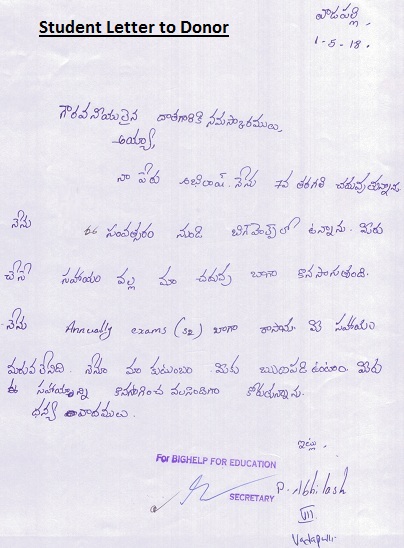 Student Letter to Donor
వాడపల్లి,
1-5-18.
గౌరవనీయులైన దాతగారికి నమస్కారములు,
అయ్యా,
నా పేరు అభిలాష్. నేను 7వ తరగతి చదువుతున్నాను.
నేను ఈ సంవత్సరం నుండి బిగ్‌హెల్ప్ లో ఉన్నాను. మీరు
చేసే సహాయం వల్ల మా చదువు బాగా కొనసాగుతుంది.
నేను Annually exams (S2) బాగా రాసాను. మీ సహాయం
మరువలేనిది. నేనూ మా కుటుంబం మీకు ఋణపడి ఉంటాం. మీరు
ఈ సహాయాన్ని కొనసాగించ వలసిందిగా కోరుతున్నాను.
ధన్యవాదములు.
ఇట్లు,
For BIGHELP FOR EDUCATION
SECRETARY
P. Abhilash
VII
Vadapalli.